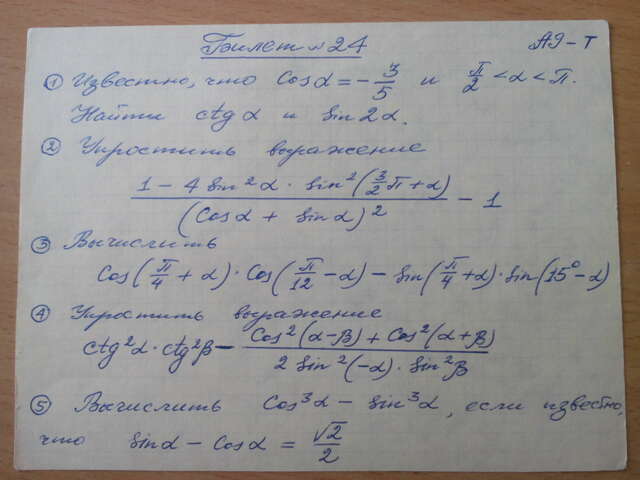 Билет №24 А9-Т
① Известно, что Cos α = -3/5 и π/2 < α < π.
Найти ctg α и Sin 2α.
② Упростить выражение
(1 - 4 Sin²α · Sin²(3/2 π + α)) / (Cos α + Sin α)² - 1
③ Вычислить
Cos(π/4 + α) · Cos(π/12 - α) - Sin(π/4 + α) · Sin(15° - α)
④ Упростить выражение
Ctg²α · Ctg²β - (Cos²(α-β) + Cos²(α+β)) / (2 Sin²(-α) · Sin²β)
⑤ Вычислить Cos³α - Sin³α, если известно,
что Sin α - Cos α = √2/2